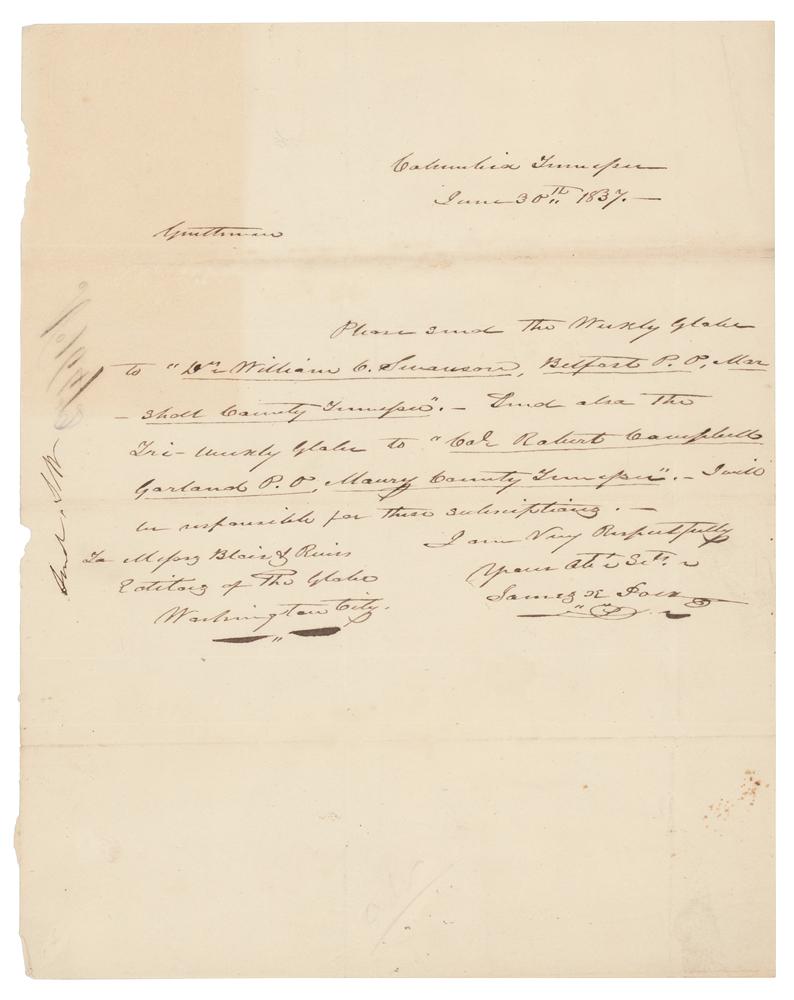 Columbia Tennessee
June 30th 1837. —
Gentlemen
Please send the Weekly Globe
to "Dr William C. Swanson, Belfast P. O, Mar
- shall County Tennessee". — Send also the
Tri-weekly Globe to "Col Robert Campbell
Garland P. O, Maury County Tennessee". — I will
be responsible for these subscriptions. —
I am Very Respectfully
Your Obt Sevt.
James K Polk
To Messrs Blair & Rives
Editors of The Globe
Washington City.